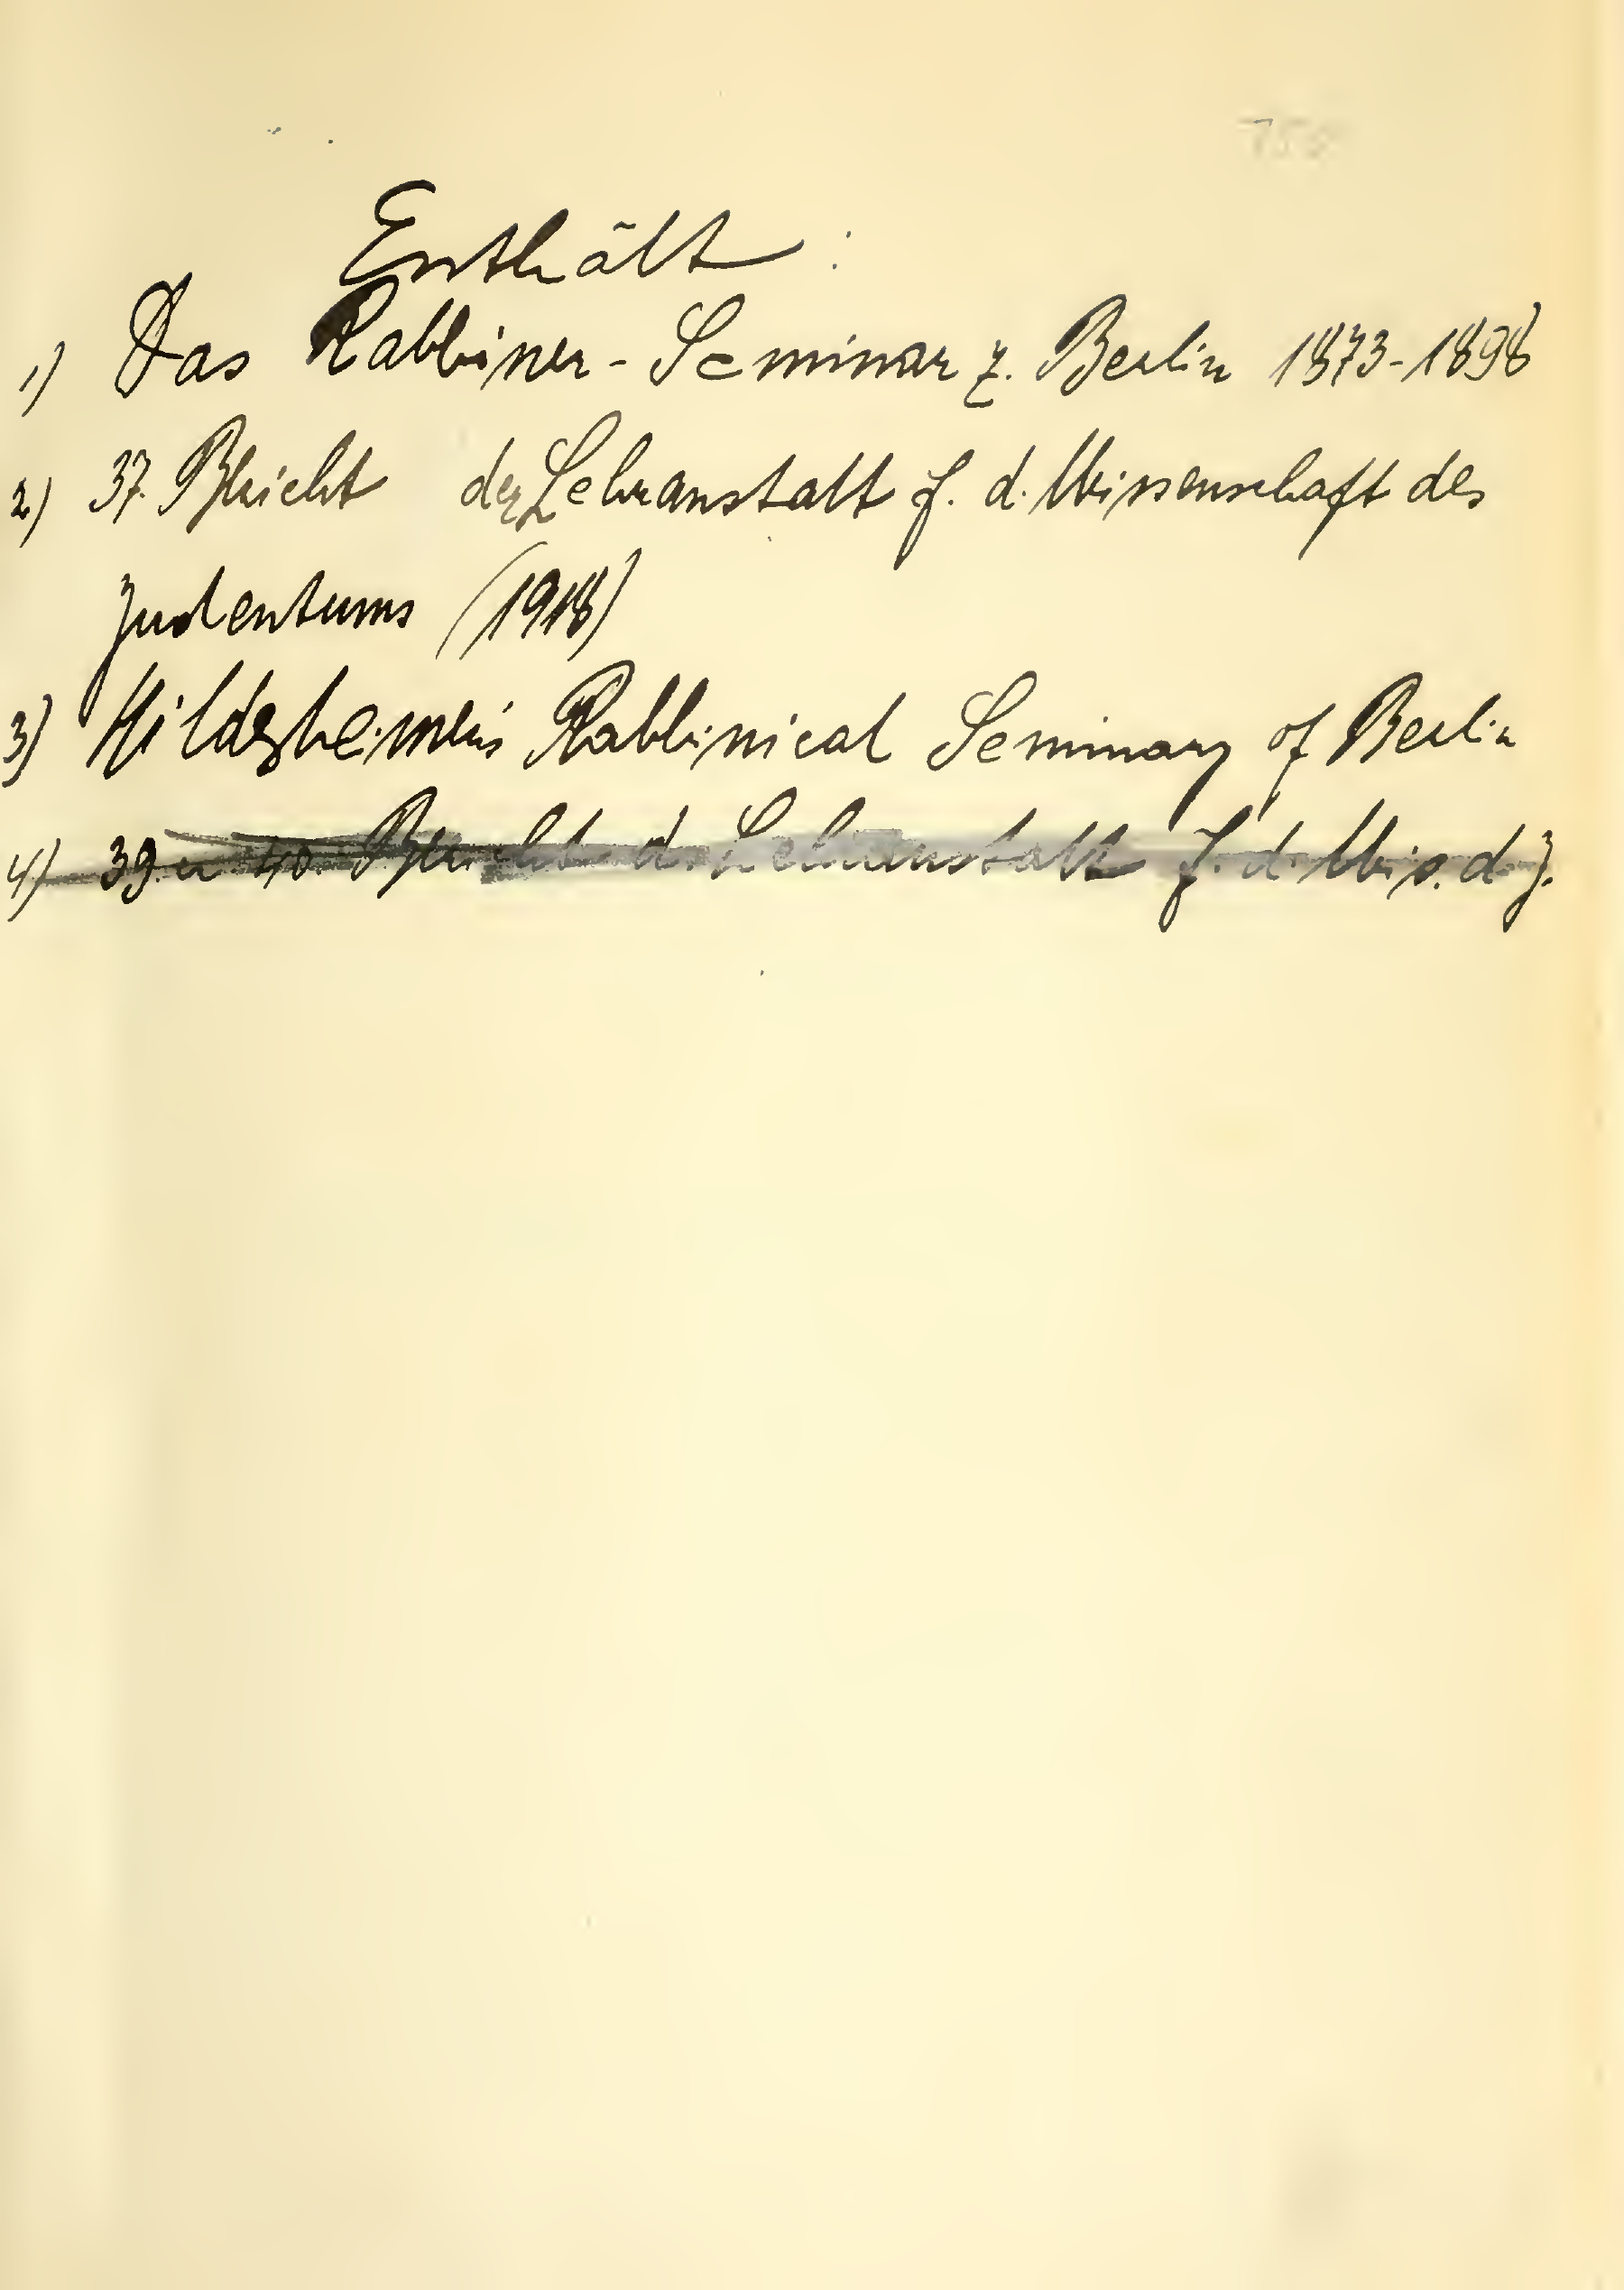 Enthält:
1) Das Rabbiner-Seminar z. Berlin 1873-1898
2) 37. Bericht der Lehranstalt f. d. Wissenschaft des
Judentums (1918)
3) Hildesheimers Rabbinical Seminary of Berlin
4) 39. u 40. Bericht d. Lehranstalt f. d. Wiss. d. J.